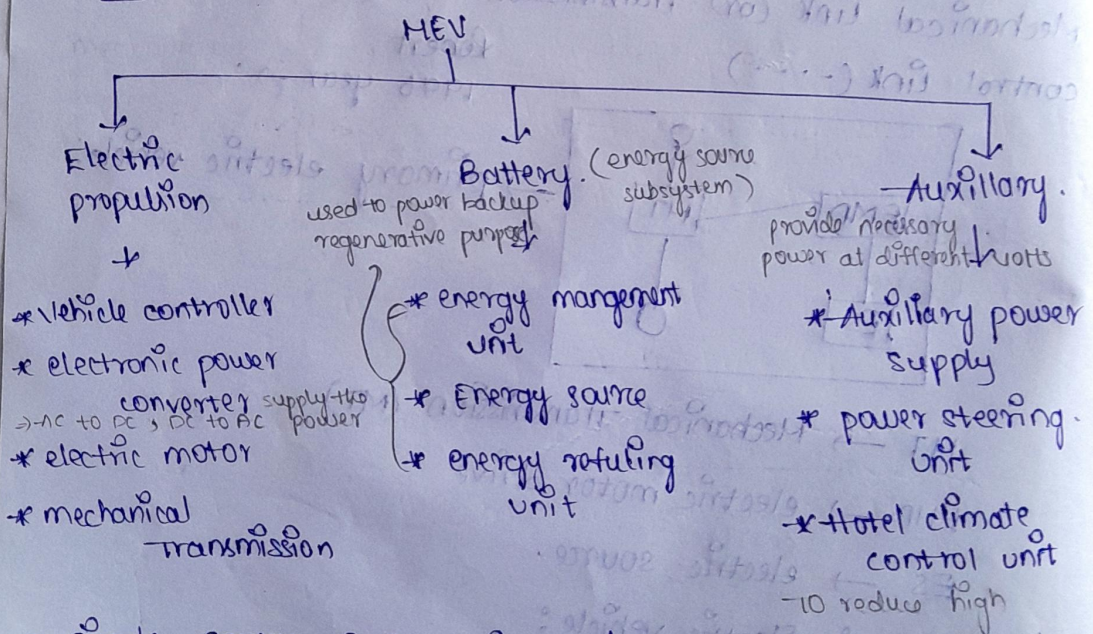 HEV
Electric
propulsion
* Vehicle controller
* electronic power
converter supply the
->AC to DC, DC to AC power
* electric motor
* mechanical
Transmission
Battery. (energy source
subsystem)
used to power backup
regenerative purpose
* energy mangement
unit
* Energy source
* energy refuling
unit
Auxillary.
provide necessary
power at different volts
* Auxillary power
supply
* power steering.
unit
* Hotel climate
control unit
To reduce high